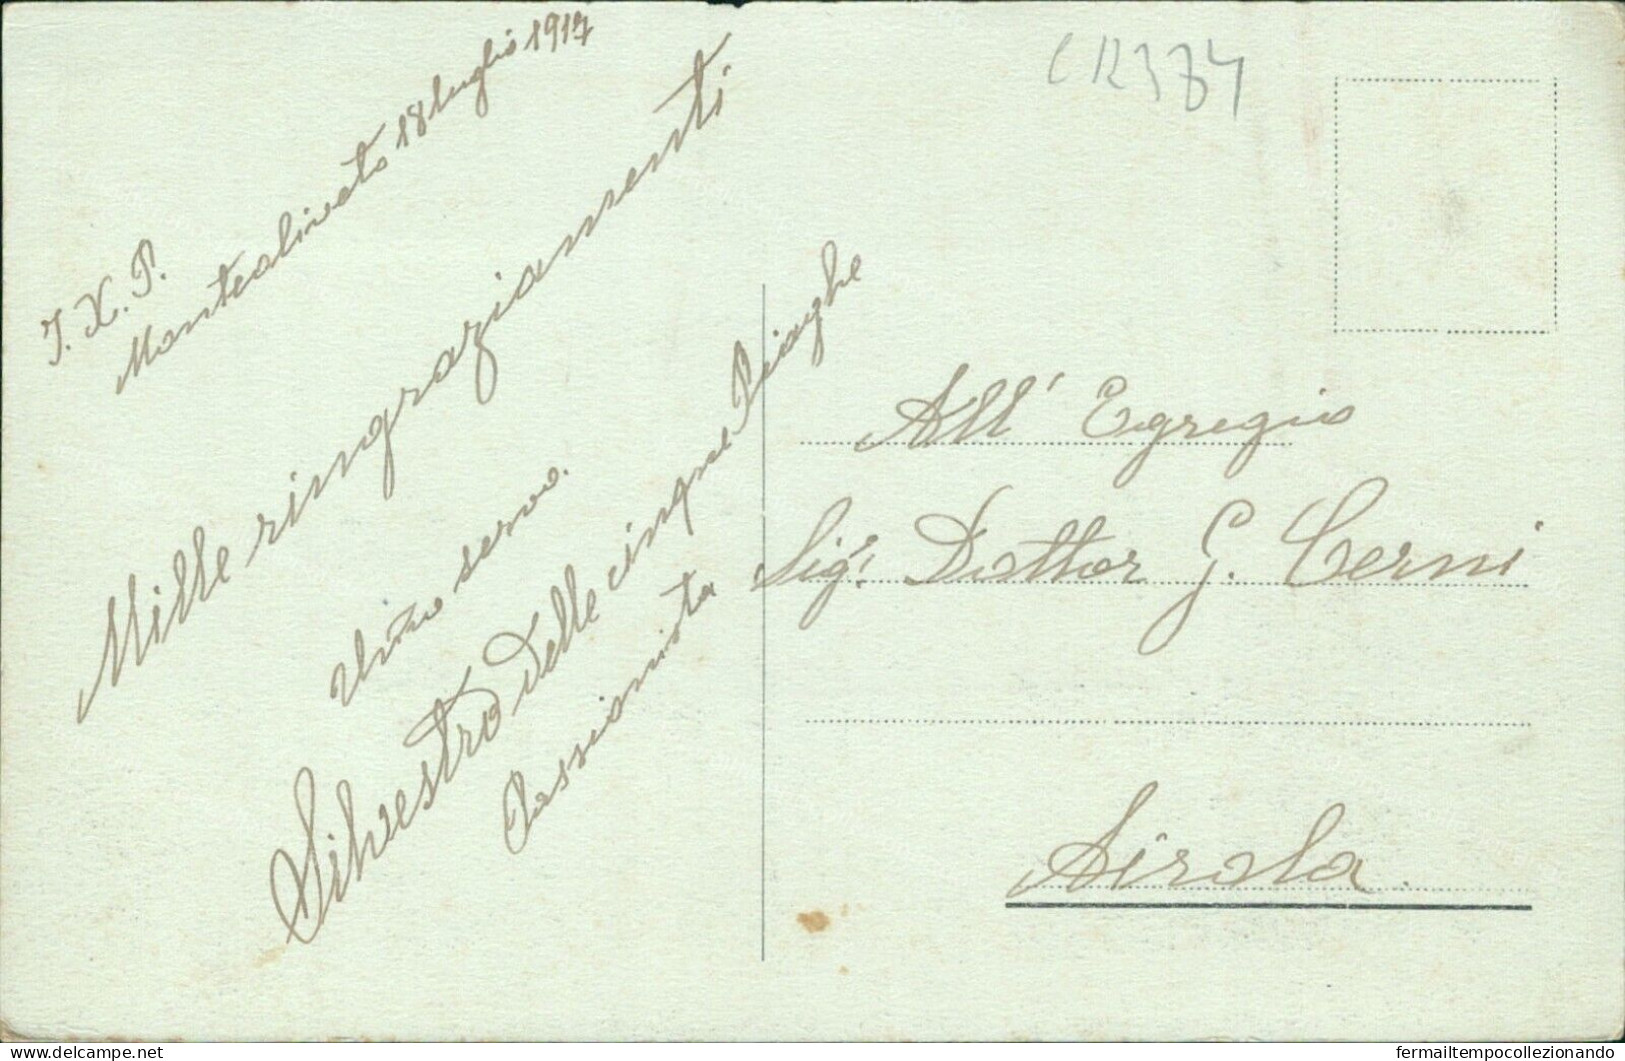 J. X. P.
Monteoliveto 18 luglio 1917
Mille ringraziamenti
servo.
Silvestro delle cinque Piaghe
Passionista
CR384
All' Egregio
Sigr. Dottor G. Cerni
Airola
delcampe.net
fermailtempocollezionando